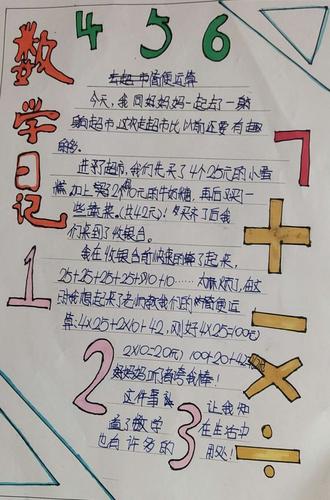 数学日记
4 5 6
去超市简便运算
今天,我同妈妈一起去了一趟
超市,这次去超市比以前还要有趣
进了超市,我们先买了4个25元的小蛋
糕,加上2个10元的牛奶糖,再后又买一
些蔬菜。(共42元)买齐了后我
们来到了收银台。
我在收银台前快速的算了起来,
25+25+25+25+10+10……
想起来了老师教我们的简便运
算:4×25+2×10+42,刚好4×25=100元
2×10=20元 100+20+42
妈妈夸我棒!
这件事 让我知
道了数学 在生活中
也有许多的 用处!
1 2 3 7
+ - × ÷